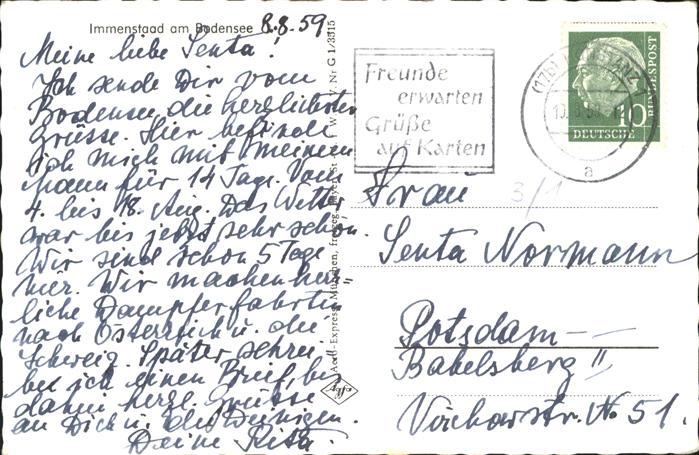 Immenstaad am Bodensee 8.8.59.
Meine liebe Senta!
Ich sende Dir vom
Bodensee die herzlichsten
Grüsse. Hier befindet
ich mich mit meinem
Mann für 14 Tage. Vom
4. bis 18. Aug. Das Wetter
war bis jetzt sehr schön.
Wir sind schon 5 Tage
hier. Wir machen herr-
liche Dampferfahrten
nach Österreich u. die
Schweiz. Später schrei-
be ich einen Brief, bis
dahin herzl. Grüsse
an Dich u. die Deinigen.
Deine Rita.
Freunde
erwarten
Grüße
auf Karten
(17b) KONSTANZ
a
DEUTSCHE
BUNDESPOST
10
3/1
Frau
Senta Normann
Potsdam-
Babelsberg II
Virchowstr. No 51.
Agfa